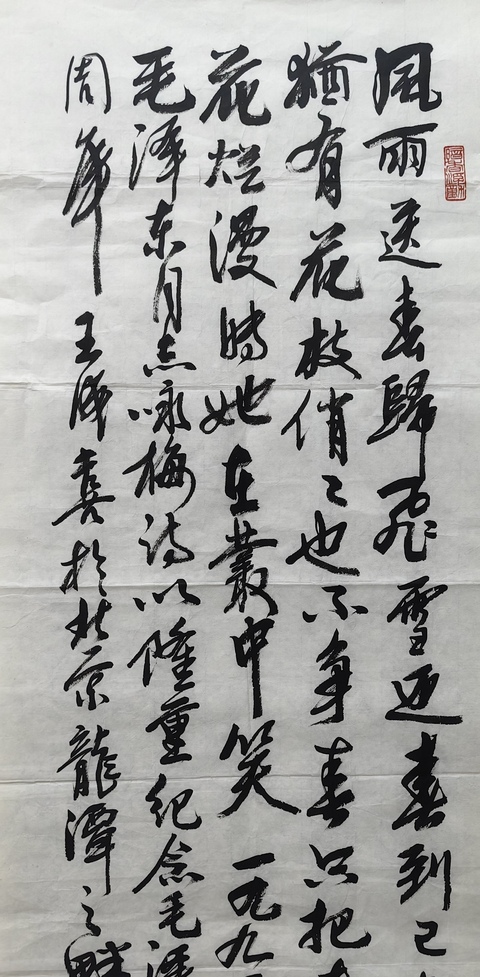 風雨送春歸飛雪迎春到已
猶有花枝俏々也不争春只把
花烂漫時她在叢中笑 一九九
毛泽东同志咏梅诗以隆重纪念毛泽
周年 王成喜於北京龍潭之畔